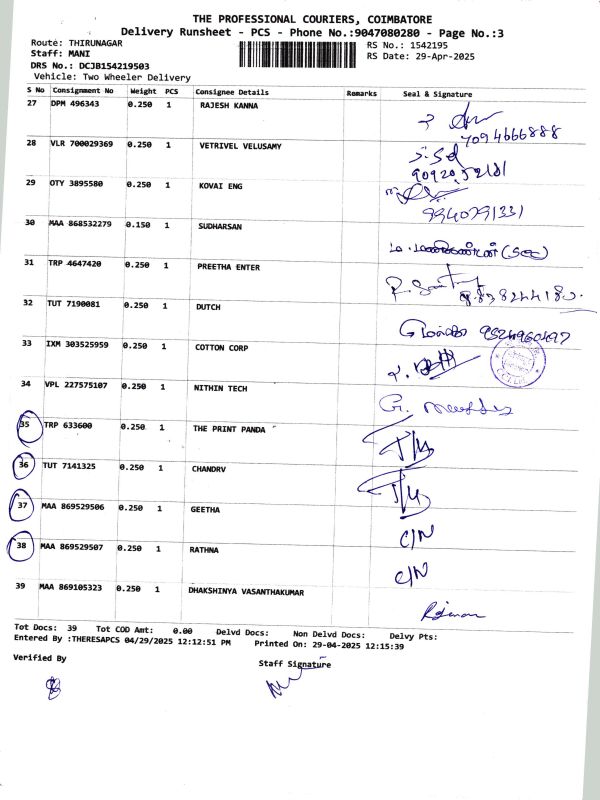 THE PROFESSIONAL COURIERS, COIMBATORE
Delivery Runsheet - PCS - Phone No.:9047080280 - Page No.:3
Route: THIRUNAGAR RS No.: 1542195
Staff: MANI RS Date: 29-Apr-2025
DRS No.: DCJB154219503
Vehicle: Two Wheeler Delivery
S No Consignment No Weight PCS Consignee Details Remarks Seal & Signature
27 DPM 496343 0.250 1 RAJESH KANNA
7094666888
28 VLR 700029369 0.250 1 VETRIVEL VELUSAMY
29 OTY 3895580 0.250 1 KOVAI ENG
9940791331
30 MAA 868532279 0.150 1 SUDHARSAN
31 TRP 4647420 0.250 1 PREETHA ENTER
32 TUT 7190081 0.250 1 DUTCH
33 IXM 303525959 0.250 1 COTTON CORP
34 VPL 227575107 0.250 1 NITHIN TECH
35 TRP 633600 0.250 1 THE PRINT PANDA
36 TUT 7141325 0.250 1 CHANDRV
37 MAA 869529506 0.250 1 GEETHA C/N
38 MAA 869529507 0.250 1 RATHNA C/N
39 MAA 869105323 0.250 1 DHAKSHINYA VASANTHAKUMAR
Tot Docs: 39 Tot COD Amt: 0.00 Delvd Docs: Non Delvd Docs: Delvy Pts:
Entered By :THERESAPCS 04/29/2025 12:12:51 PM Printed On: 29-04-2025 12:15:39
Verified By Staff Signature